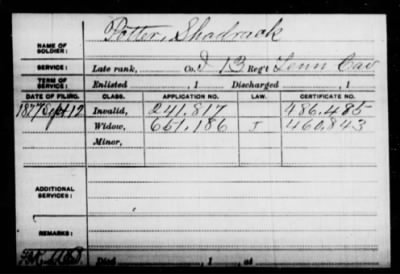 Potter, Shadrack
NAME OF SOLDIER:
SERVICE: Late rank, Co. D 13 Reg't Tenn Cav
TERM OF SERVICE: Enlisted , 1 Discharged , 1
DATE OF FILING. CLASS. APPLICATION NO. LAW. CERTIFICATE NO.
1877 Sept 12 Invalid, 241.817 486.485
Widow, 651.186 J 460.843
Minor,
ADDITIONAL SERVICES:
REMARKS:
Died , 1 , at